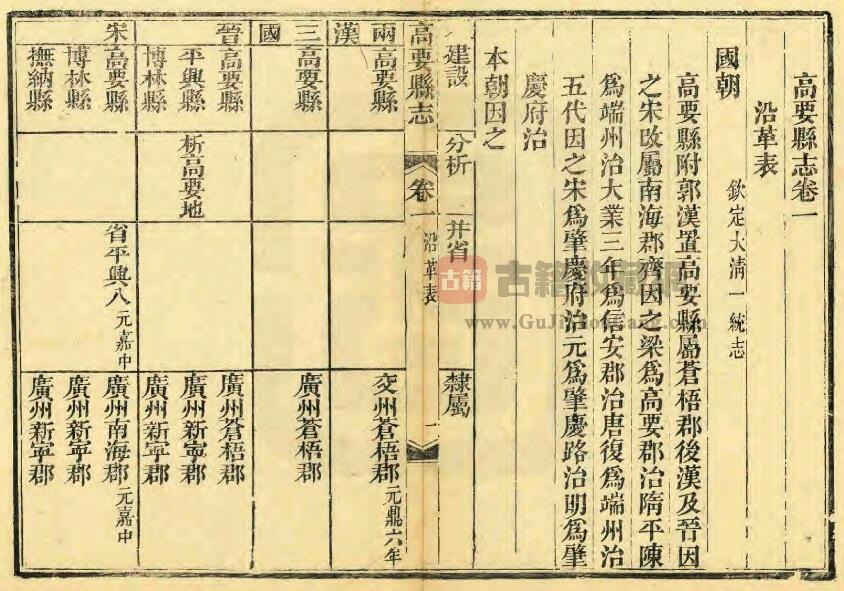 高要縣志卷一
沿革表
國朝
欽定大淸一統志
高要縣附郭漢置高要縣屬蒼梧郡後漢及晉因
之宋改屬南海郡齊因之梁爲高要郡治隋平陳
爲端州治大業三年爲信安郡治唐復爲端州治
五代因之宋爲肇慶府治元爲肇慶路治明爲肇
慶府治
本朝因之
建設 分析 并省 隸屬
高要縣志 卷一 沿革表 一
兩漢 高要縣 交州蒼梧郡元鼎六年
三國 高要縣 廣州蒼梧郡
晉 高要縣 廣州蒼梧郡
平興縣 析高要地 廣州新寧郡
博林縣 廣州新寧郡
宋 高要縣 省平興入元嘉中 廣州南海郡元嘉中
博林縣 廣州新寧郡
撫納縣 廣州新寧郡
古籍 古籍收藏網
www.GuJiShouCang.com